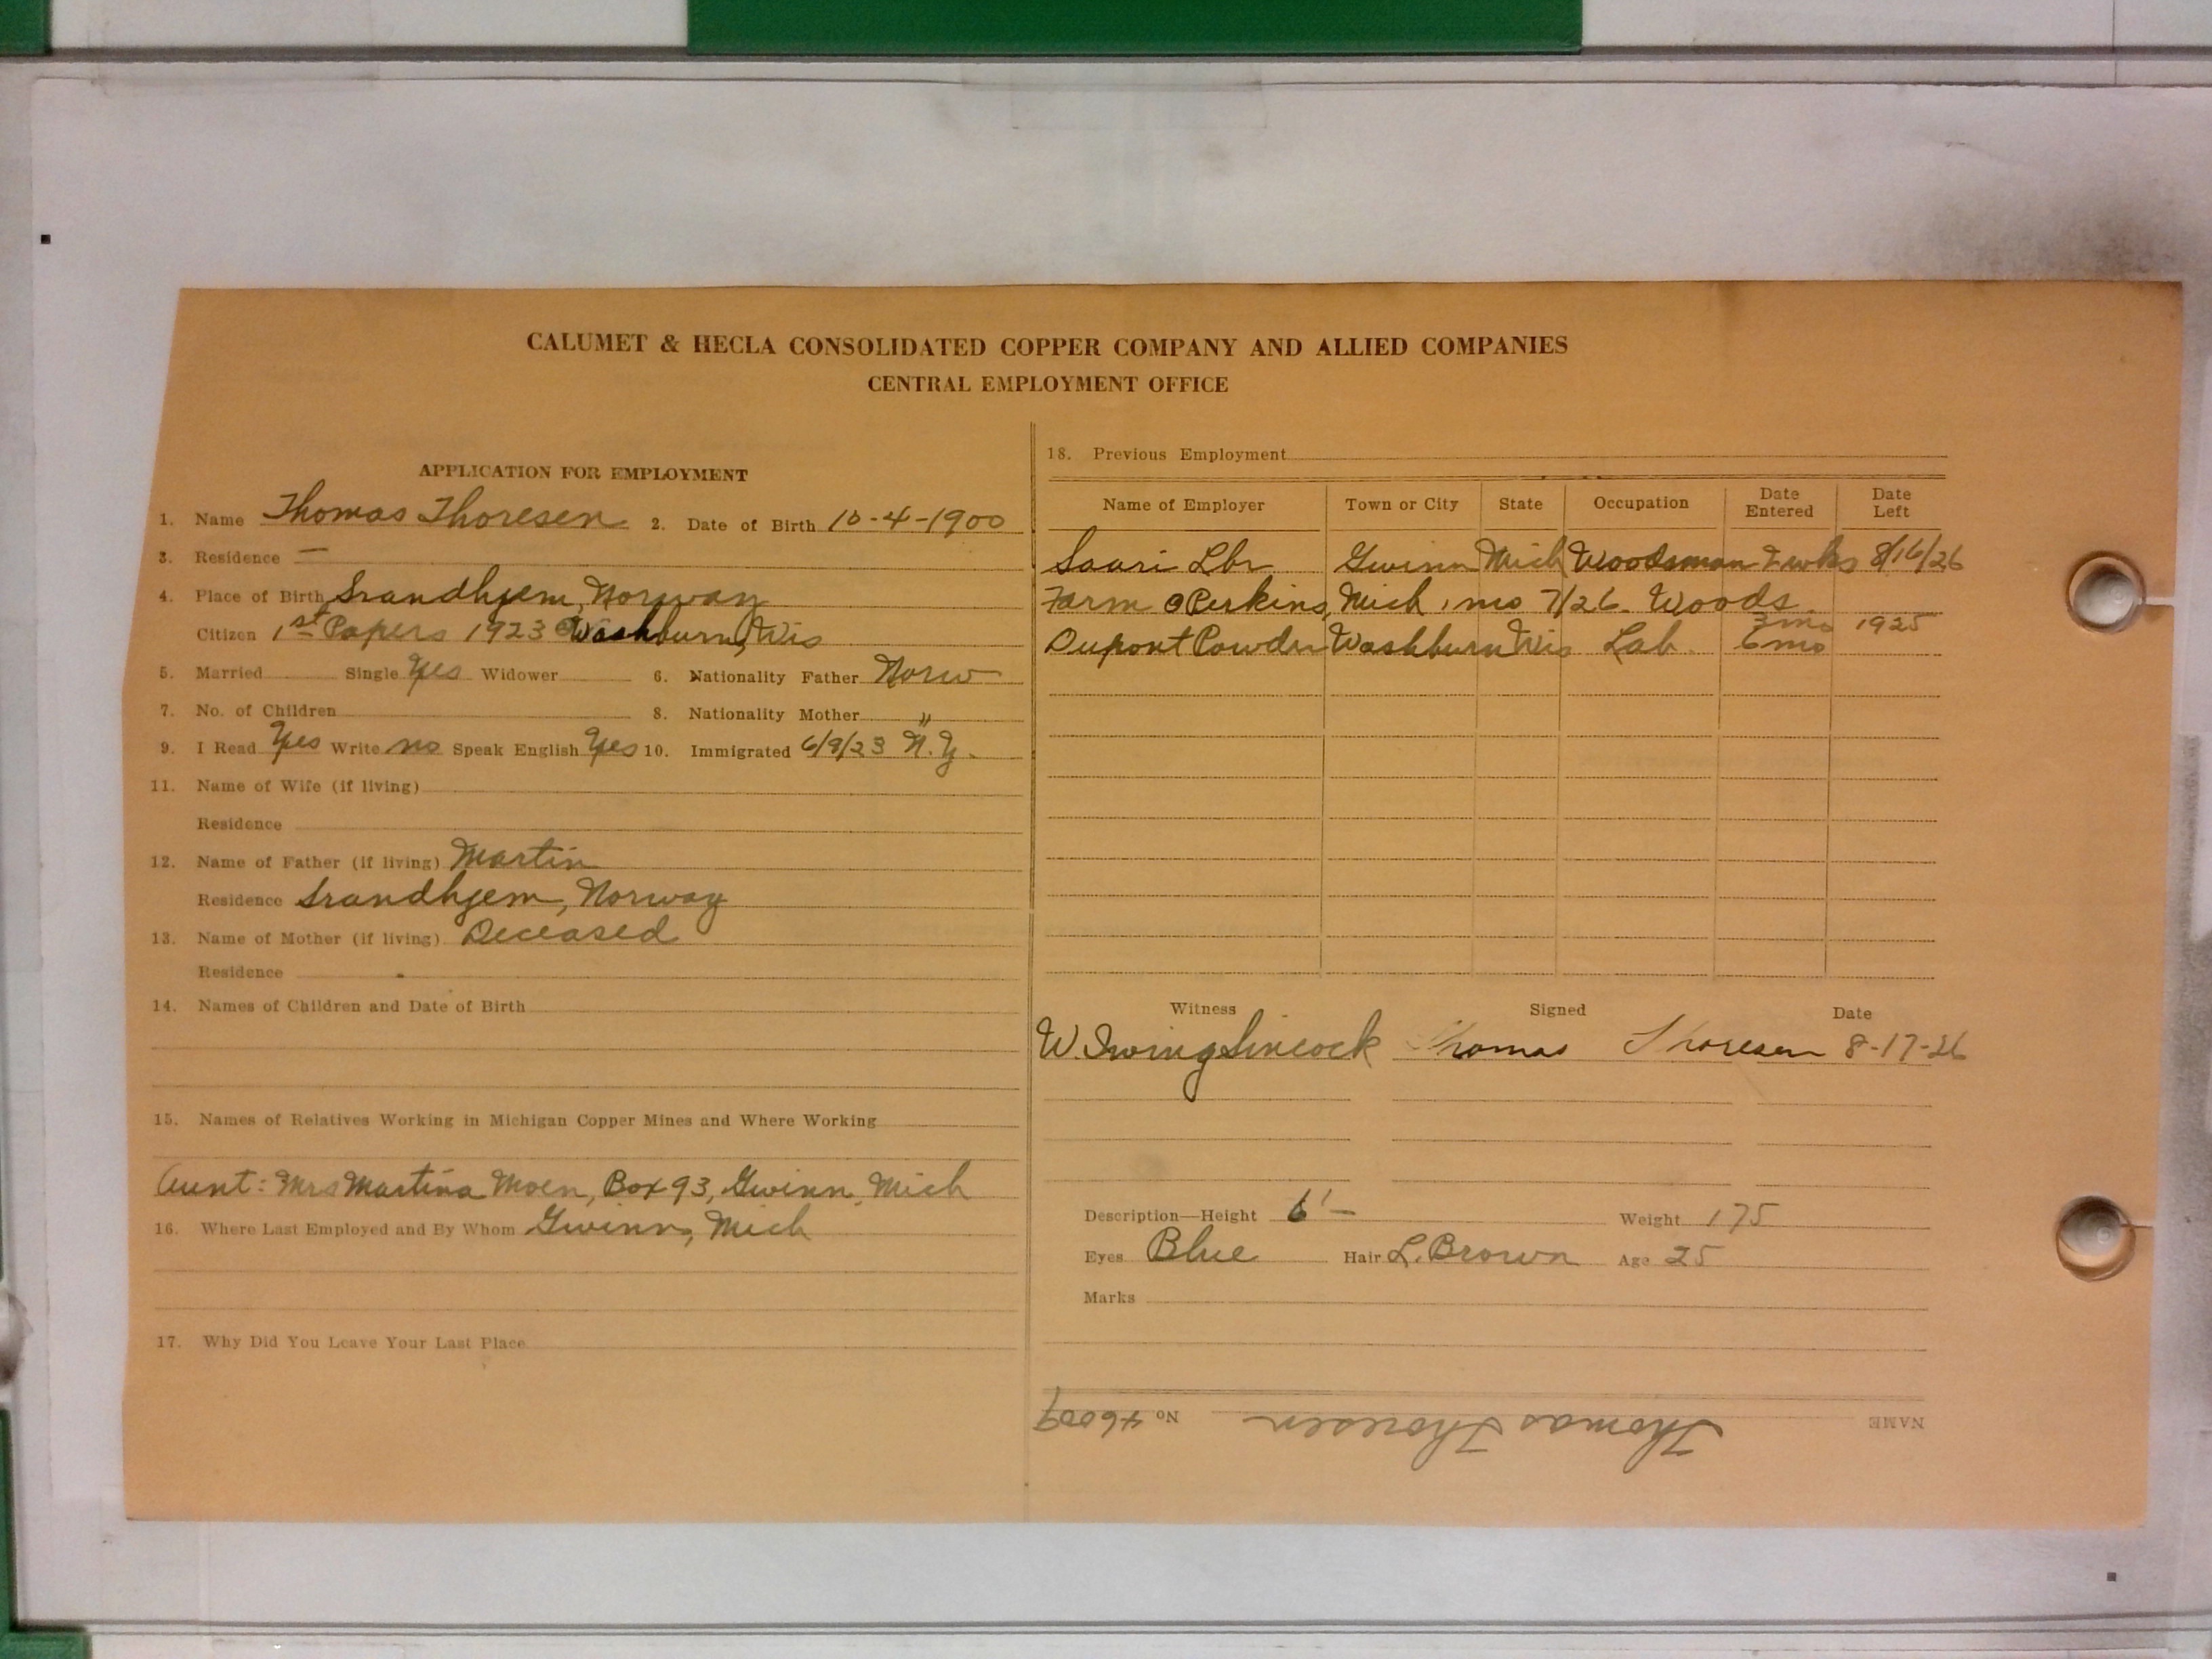 CALUMET & HECLA CONSOLIDATED COPPER COMPANY AND ALLIED COMPANIES
CENTRAL EMPLOYMENT OFFICE
APPLICATION FOR EMPLOYMENT
1. Name Thomas Thoresen 2. Date of Birth 10-4-1900
3. Residence —
4. Place of Birth Srandhjem, Norway
Citizen 1st Papers 1923 @ Washburn, Wis
5. Married Single Yes Widower 6. Nationality Father Norw
7. No. of Children 8. Nationality Mother "
9. I Read Yes Write no Speak English Yes 10. Immigrated 6/9/23 N.Y.
11. Name of Wife (if living)
Residence
12. Name of Father (if living) Martin
Residence Srandhjem, Norway
13. Name of Mother (if living) Deceased
Residence
14. Names of Children and Date of Birth
15. Names of Relatives Working in Michigan Copper Mines and Where Working
Aunt: Mrs Martina Moen, Box 93, Gwinn, Mich
16. Where Last Employed and By Whom Gwinn, Mich
17. Why Did You Leave Your Last Place
18. Previous Employment
Name of Employer Town or City State Occupation Date Entered Date Left
Saari Lbr Gwinn Mich Woodsman 2 wks 8/16/26
Farm @ Perkins, Mich, mo 7/26. Woods.
3 mo 1925
Dupont Powder Washburn Wis Lab. 6 mo
Witness Signed Date
W. Irving Sincock Thomas Thoresen 8-17-26
Description—Height 6'— Weight 175
Eyes Blue Hair L. Brown Age 25
Marks
NAME Thomas Thoresen No 46009